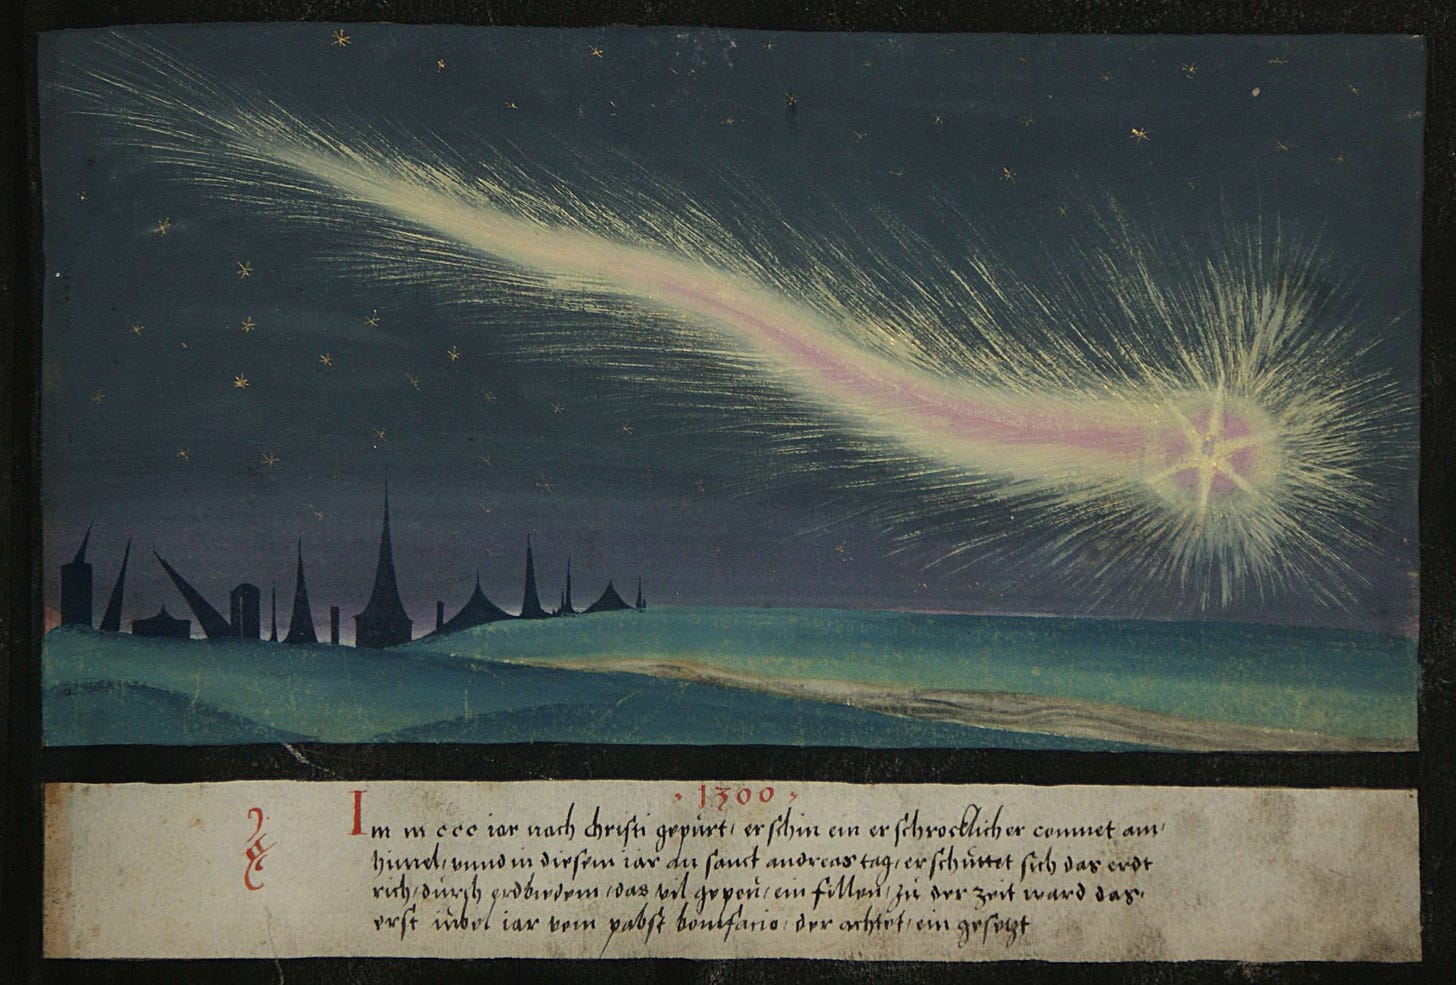 · 1300 ·
Im m ccc iar nach christi gepurt / erschin ein erschrocklicher comnet am /
himel / vnnd in diesem iar an sanct andreas tag / erschuttet sich das erdt
rich / durch erdbidem / das vil gepeu / ein fillen / zu der zeit ward das
erst iubel iar vom pabst bonifacio / der achtet / ein gesetzt